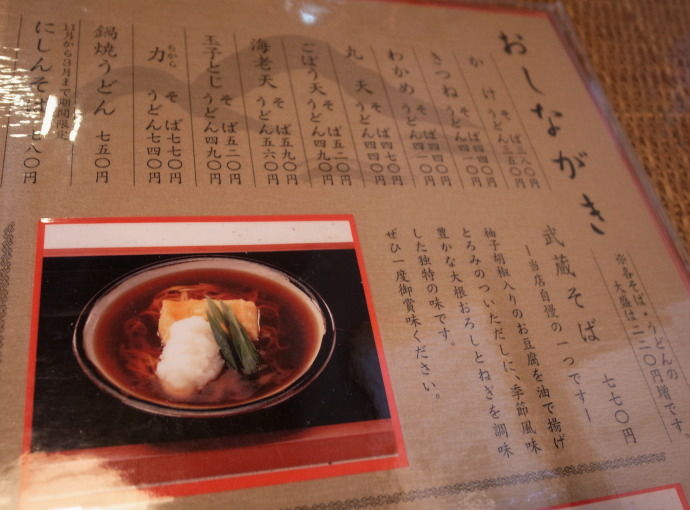 おしながき
かけ そば 三八〇円
うどん 三五〇円
きつね そば 四四〇円
うどん 四一〇円
わかめ そば 四七〇円
うどん 四四〇円
丸天 そば 五二〇円
うどん 四九〇円
ごぼう天 そば 五二〇円
うどん 四九〇円
海老天 そば 五九〇円
うどん 五六〇円
玉子とじ そば 五二〇円
うどん 四九〇円
ちから
力 そば 七七〇円
うどん 七四〇円
鍋焼うどん 七五〇円
11月から3月まで期間限定
にしんそば 七八〇円
※各そば・うどんの
大盛は二二〇円増です。
武蔵そば 七七〇円
ー当店自慢の一つですー
柚子胡椒入りのお豆腐を油で揚げ
とろみのついただしに、季節風味
豊かな大根おろしとねぎを調味
した独特の味です。
ぜひ一度御賞味ください。